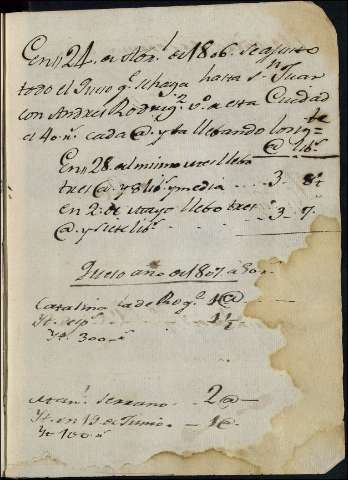 En 24 de Abr.l de 1806 se ajusto
todo el Queso q.e se haga hasta S.n Juan
con Andres Rodrig.z v.o de esta Ciudad
a 40 r.s cada @ y ba llebando lo sig.te
@ lib.s
En 28 del mismo mes llebo
tres @ y 8 lib.s y media ... 3 .. 8½
en 2 de Mayo llebo tres
@ y siete lib.s ... 3 .. 7
Queso año de 1807 a 50 r.s
Catalina de Rodg.o 4@
Yt.
Yt. 300 r.s
Man.l Serrano - 2@
Yt. en 19 de Junio - 1@
Yt 100 r.s